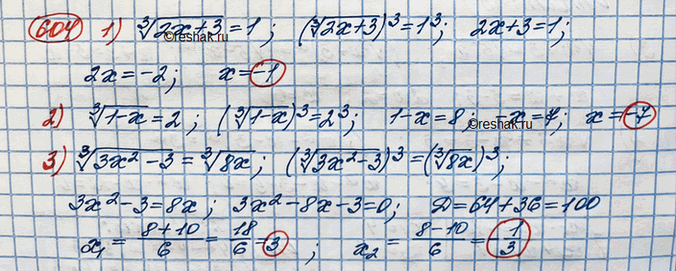 604 1) ∛(2x+3) = 1; (∛(2x+3))³ = 1³; 2x+3=1;
©reshak.ru
2x = -2; x = -1
2) ∛(1-x) = 2; (∛(1-x))³ = 2³; 1-x = 8; -x = 7; x = -7
©reshak.ru
3) ∛(3x²-3) = ∛(8x); (∛(3x²-3))³ = (∛(8x))³;
3x²-3=8x; 3x²-8x-3=0; D=64+36=100
x₁ = (8+10)/6 = 18/6 - 3; x₂ = (8-10)/6 = -1/3